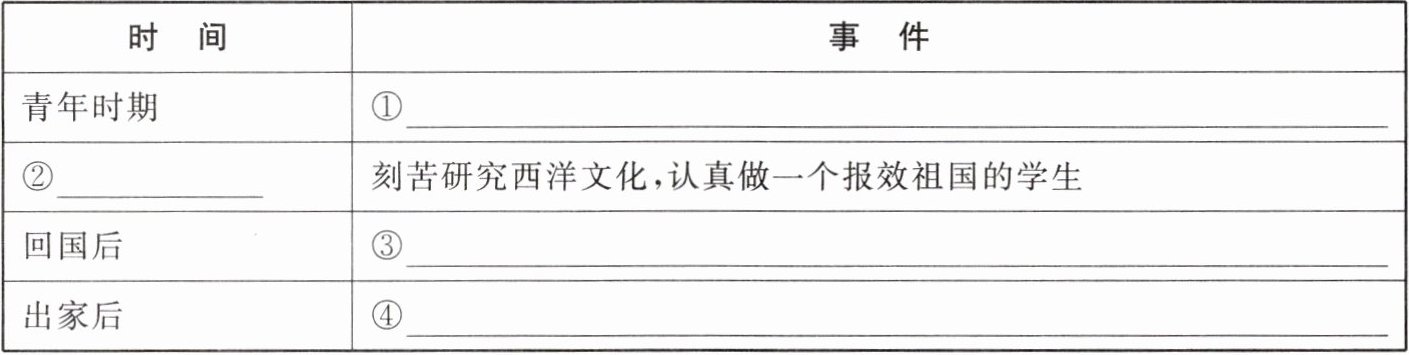 时 间 事 件
青年时期 ①
② 刻苦研究西洋文化,认真做一个报效祖国的学生
回国后 ③
出家后 ④